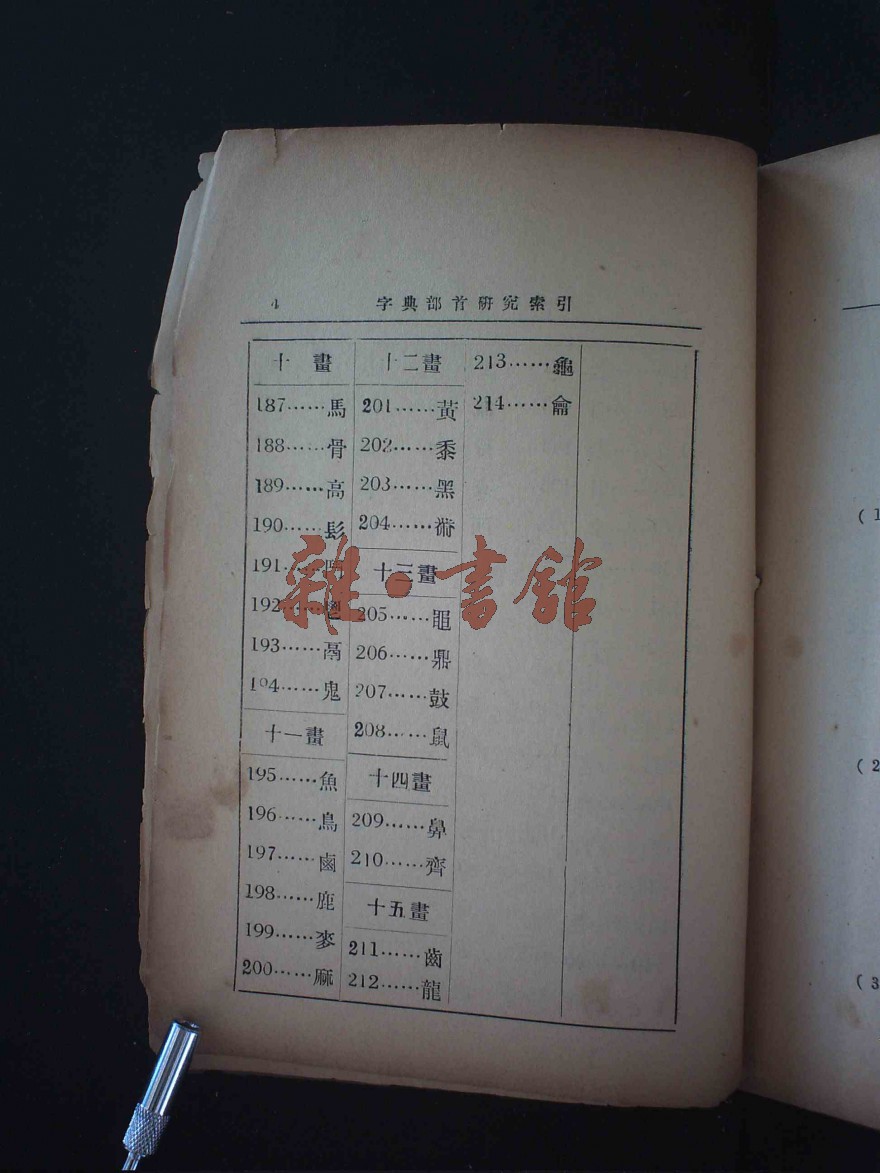 4 字典部首硏究索引
十 畫
187……馬
188……骨
189……高
190……髟
191……
192……
193……鬲
194……鬼
十一畫
195……魚
196……鳥
197……鹵
198……鹿
199……麥
200……麻
十二畫
201……黃
202……黍
203……黑
204……黹
十三畫
205……黽
206……鼎
207……鼓
208……鼠
十四畫
209……鼻
210……齊
十五畫
211……齒
212……龍
213……龜
214……龠
雜·書館
(1
(2
(3